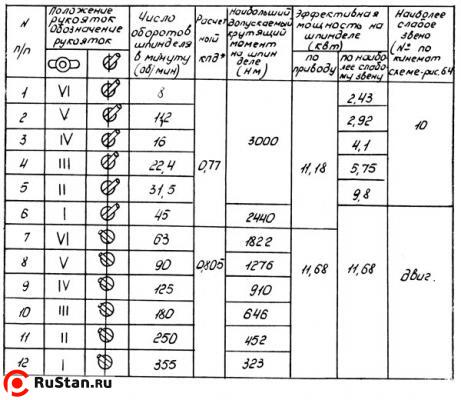 N п/п | Положение рукояток Обозначение рукояток | Число оборотов шпинделя в минуту (об/мин) | Расчетный КПД* | Наибольший допускаемый крутящий момент на шпинделе (нм) | Эффективная мощность на шпинделе (квт) | Наиболее слабое звено (№ по кинемат схеме-рис.64
по приводу | по наиболее слабому звену
1 VI 8 2,43
2 V 12 2,92
3 IV 16 3000 4,1 10
4 III 22,4 0,77 11,18 5,75
5 II 31,5 9,8
6 I 45 2440
7 VI 63 1822
8 V 90 0,805 1276 11,68 11,68 двиг.
9 IV 125 910
10 III 180 646
11 II 250 452
12 I 355 323
RuStan.ru